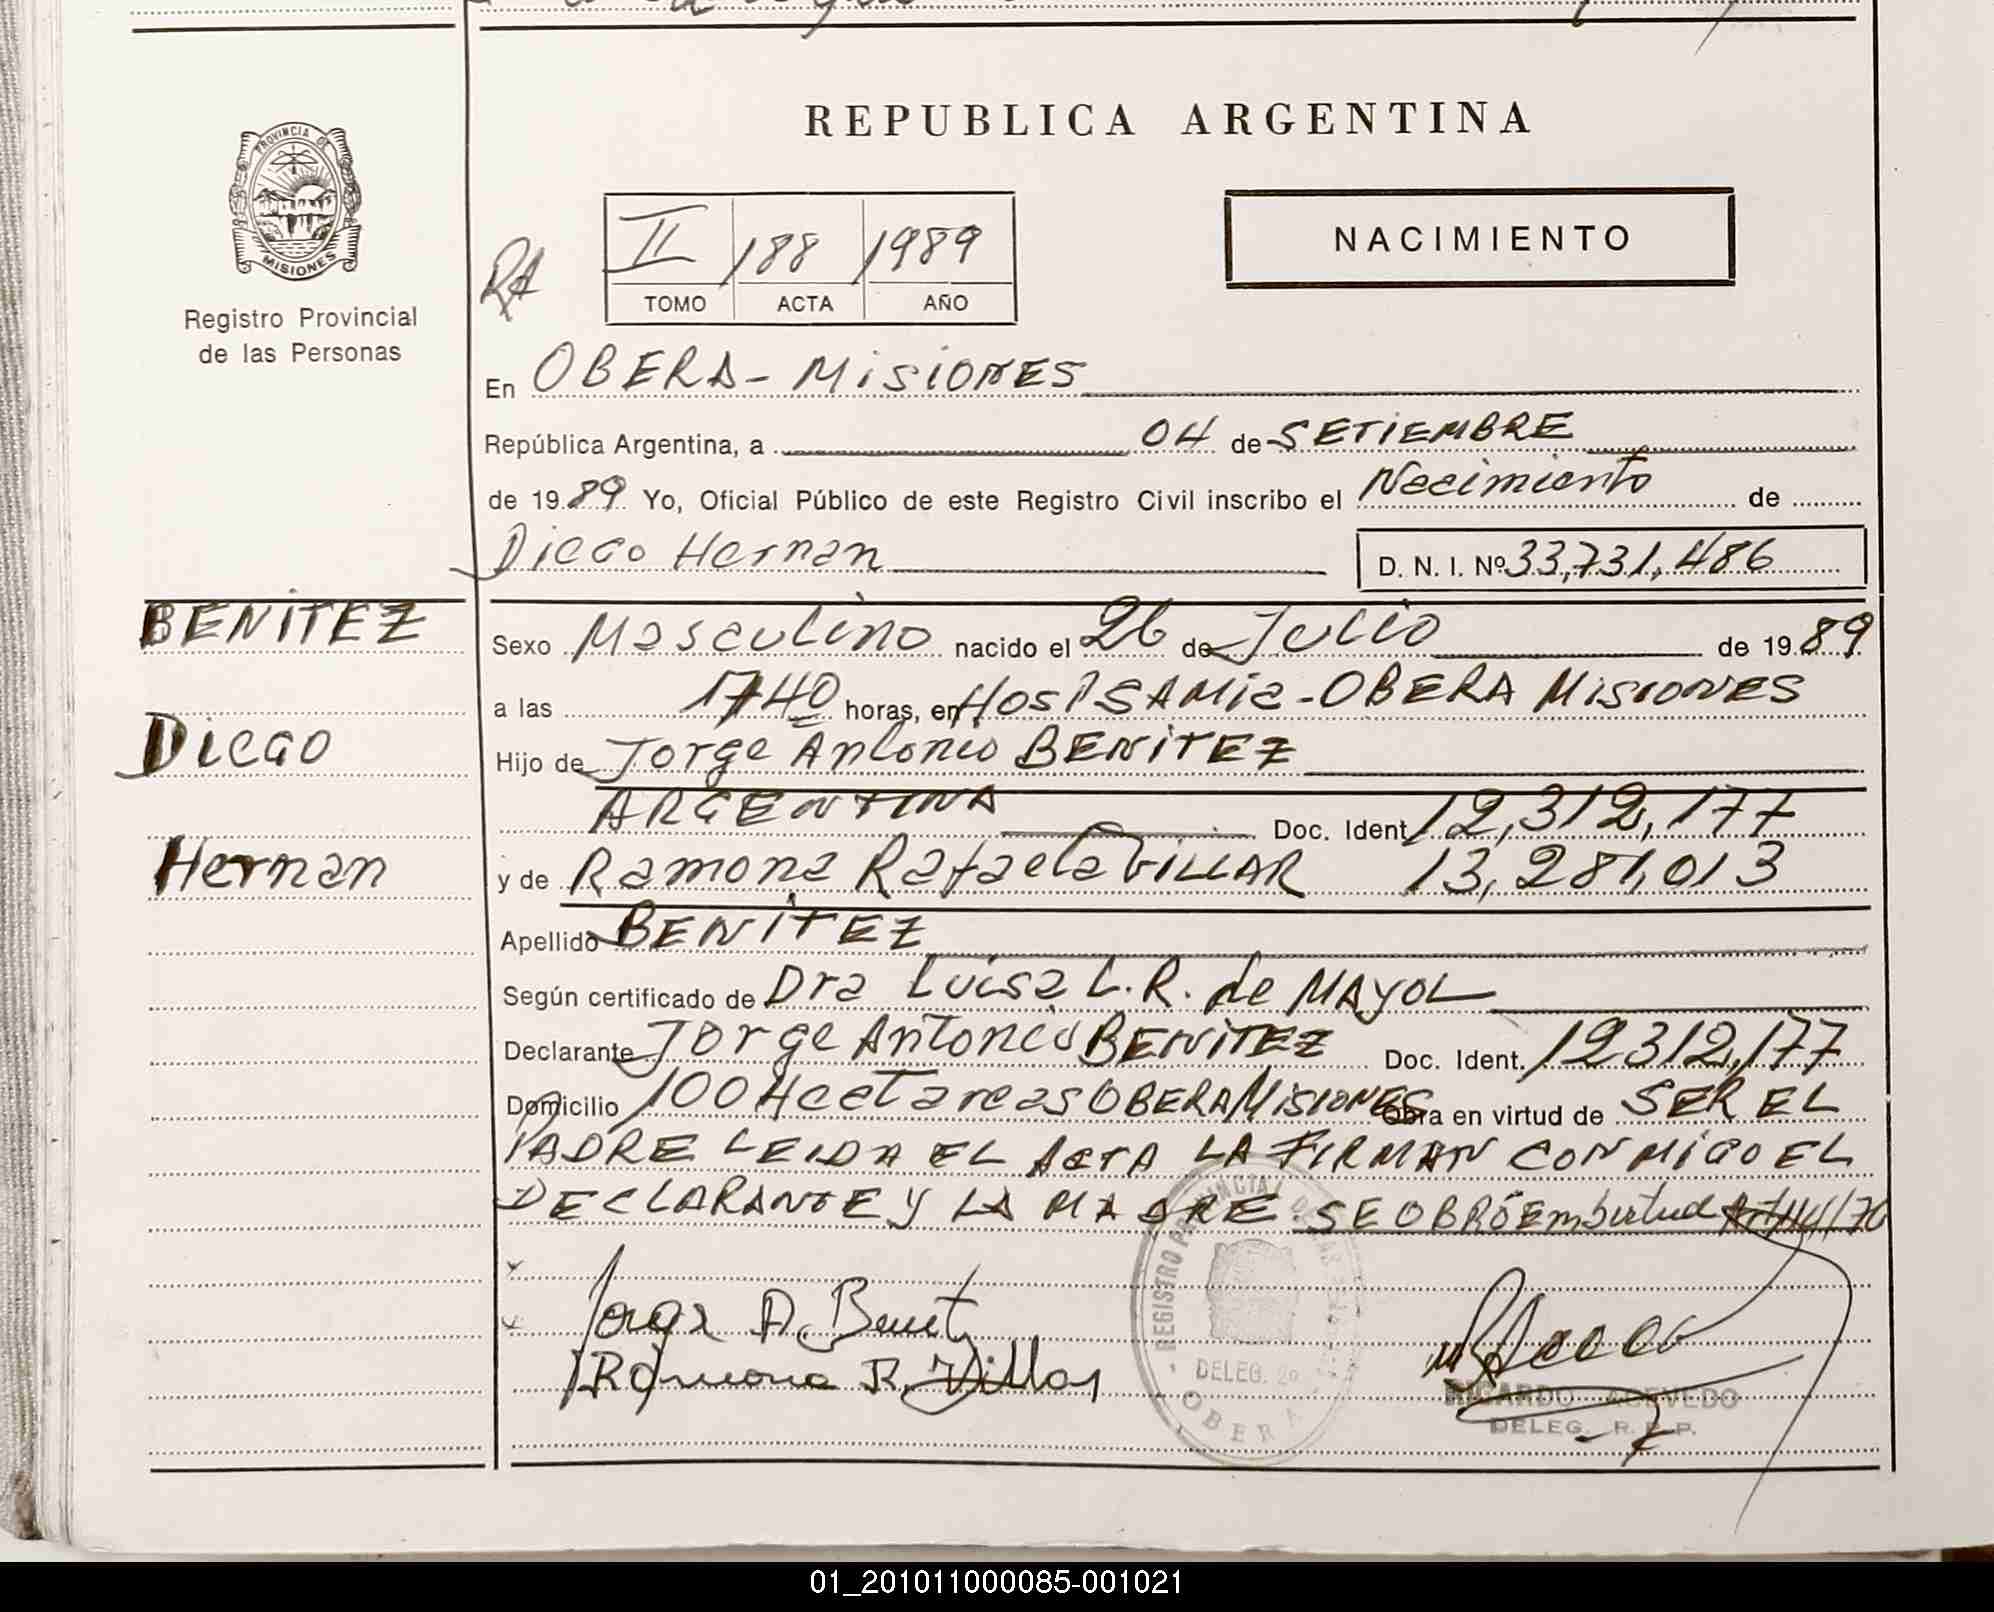 REPUBLICA ARGENTINA
PROVINCIA DE
MISIONES
Registro Provincial
de las Personas
RA
II 188 1989
TOMO ACTA AÑO
NACIMIENTO
En OBERA - MisiONES
República Argentina, a 04 de SETIEMBRE
de 1989 Yo, Oficial Público de este Registro Civil inscribo el Nacimiento de
Diego Hernan D. N. I. Nº 33,731,486
BENITEZ
Diego
Hernan
Sexo Masculino nacido el 26 de Julio de 1989
a las 1740 horas, en HOSP SAMic - OBERA MisiONES
Hijo de Jorge Antonio BENITEZ
ARGENTINA Doc. Ident. 12,312,177
y de Ramona Rafaela VILLAR 13,281,013
Apellido BENITEZ
Según certificado de Dra Luisa L.R. de MAYOL
Declarante Jorge Antonio BENITEZ Doc. Ident. 12312,177
Domicilio 100 Hectareas OBERA MISIONES Obra en virtud de SER EL
PADRE LEIDA EL ACTA LA FIRMAN CONMIGO EL
DECLARANTE Y LA MADRE. SE OBRÓ Em birtud
Jorge A. Benitz
Ramona R. Villar
REGISTRO PROVINCIAL DE LAS
DELEG.
OBERA
RICARDO ACEVEDO
DELEG. R. P. P.
01_201011000085-001021